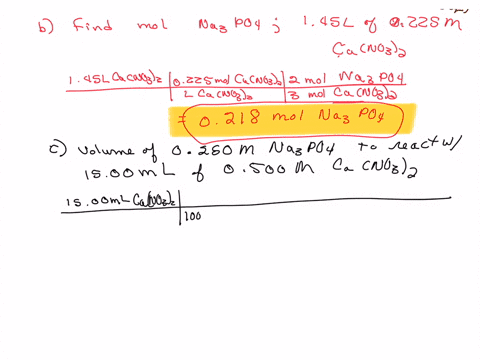 b) Find mol Na3PO4; 1.45L of 0.225M
Ca(NO3)2
1.45L Ca(NO3)2 | 0.225mol Ca(NO3)2 | 2 mol Na3PO4
L Ca(NO3)2 | 3 mol Ca(NO3)2
= 0.218 mol Na3PO4
c) Volume of 0.250M Na3PO4 to react w/
15.00mL of 0.500M Ca(NO3)2
15.00mL Ca(NO3)2
100